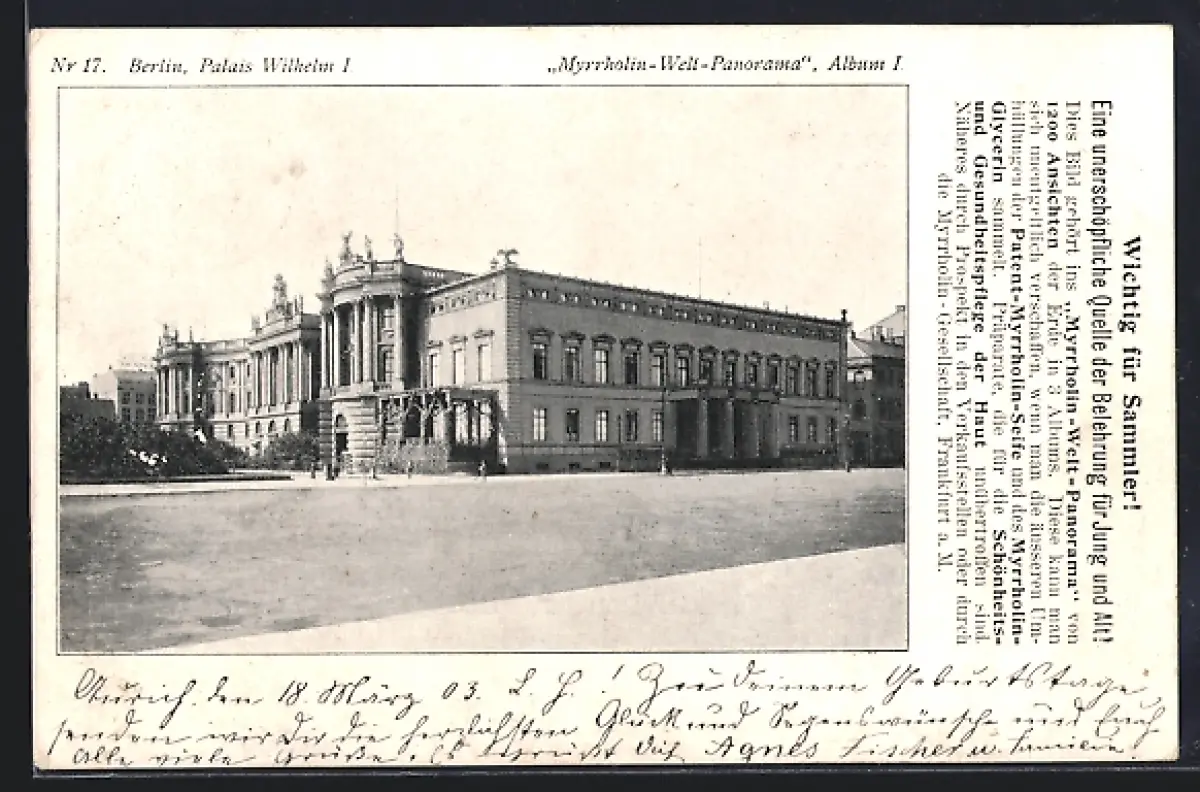 Nr 17. Berlin, Palais Wilhelm I.
„Myrrholin-Welt-Panorama“, Album I.
Wichtig für Sammler!
Eine unerschöpfliche Quelle der Belehrung für Jung und Alt!
Dies Bild gehört ins „Myrrholin-Welt-Panorama“ von
1200 Ansichten der Erde in 3 Albums. Diese kann man
sich unentgeltlich verschaffen, wenn man die äusseren Um-
hüllungen der Patent-Myrrholin-Seife und des Myrrholin-
Glycerin sammelt, Präparate, die für die Schönheits-
und Gesundheitspflege der Haut unübertroffen sind.
Näheres durch Prospekt in den Verkaufsstellen oder durch
die Myrrholin-Gesellschaft, Frankfurt a. M.
Aurich. den 18. März 03. L. H.! Zu Deinem Geburtstage
senden wir Dir die herzlichsten Glück und Segenswünsche und Euch
Alle viele Grüße. Es Dich Agnes Fischer u. Familie.